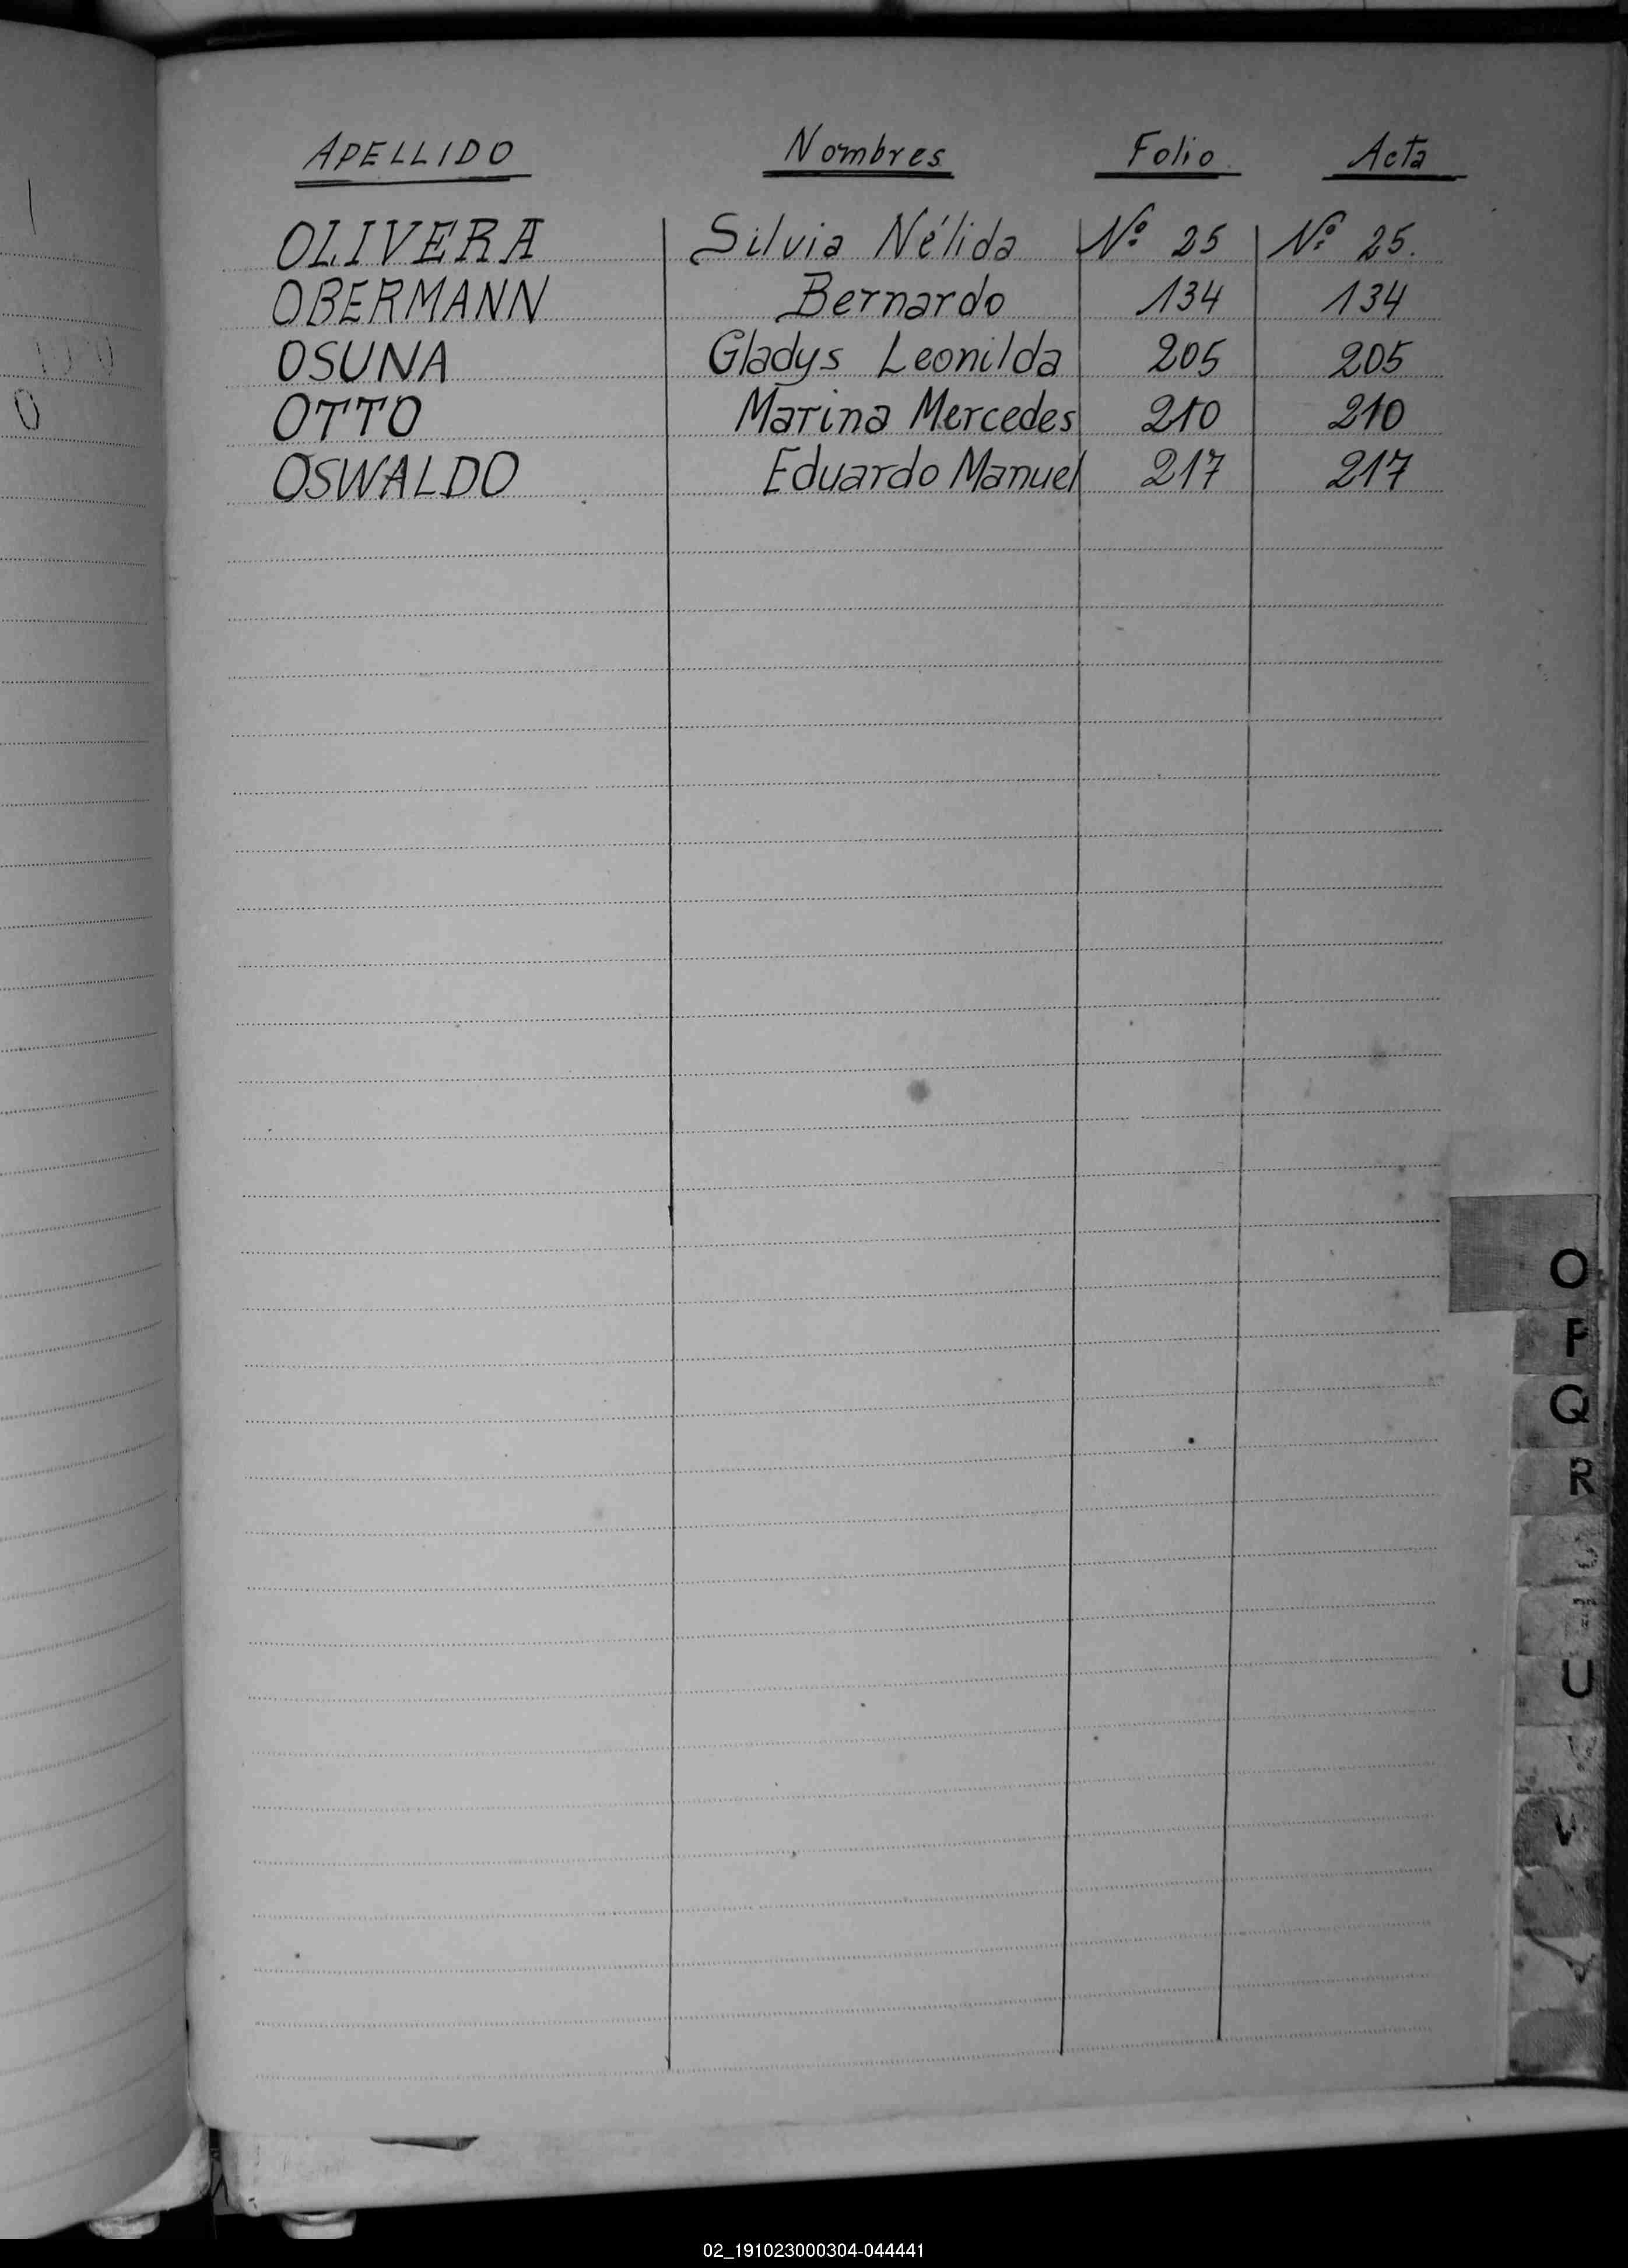 APELLIDO Nombres Folio Acta
OLIVERA Silvia Nélida Nº 25 Nº 25.
OBERMANN Bernardo 134 134
OSUNA Gladys Leonilda 205 205
OTTO Marina Mercedes 210 210
OSWALDO Eduardo Manuel 217 217
O
P
Q
R
U
V
02_191023000304-044441